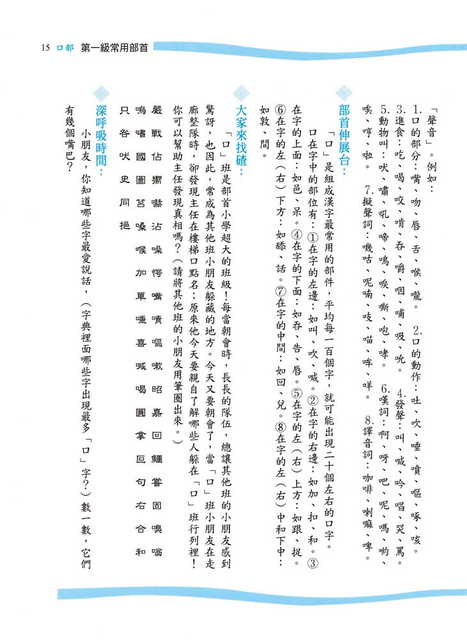 15 口部 第一級常用部首
「聲音」。例如：
1.口的部分：嘴、吻、唇、舌、喉、嚨。 2.口的動作：吐、吹、唾、噴、嘔、啄、咳。
3.進食：吃、喝、咬、啃、吞、嚼、咽、哺、吸、吮。 4.發聲：叫、喊、吟、唱、哭、罵。
5.動物叫：吠、嘯、吼、啼、鳴、喉、嘶、咆、哮。 6.嘆詞：啊、呀、吧、呢、嗎、喲、
唉、哼、啦。 7.擬聲詞：嘰咕、呢喃、吱、喵、哞、咩。 8.譯音詞：咖啡、喇嘛、啤。
部首伸展台：
「口」是組成漢字最常用的部件，平均每一百個字，就可能出現二十個左右的口字。
口在字中的部位有：①在字的左邊：如叫、吹、喊。②在字的右邊：如加、扣、和。③
在字的上面：如邑、呆。④在字的下面：如吞、告、唇。⑤在字的左（右）上方：如跟、捉。
⑥在字的左（右）下方：如舔、話。⑦在字的中間：如回、兌。⑧在字的左（右）中和下中：
如敦、問。
大家來找碴：
「口」班是部首小學超大的班級！每當朝會時，長長的隊伍，總讓其他班的小朋友感到
驚訝，也因此，常成為其他班小朋友躲藏的地方。今天又要朝會了，當「口」班小朋友在走
廊整隊時，卻發現主任在樓梯口點名；原來他今天要親自了解哪些人躲在「口」班行列裡！
你可以幫助主任發現真相嗎？（請將其他班的小朋友用筆圈出來。）
嚴 戰 佔 嚮 嚇 沾 嗓 愕 嘴 嘖 嘔 嗽 昭 嘉 回 嚐 嘗 固 嗅 嗡
嗚 嗜 國 圖 筥 嗓 喉 加 單 唾 喜 喊 喝 圓 拿 叵 句 右 合 和
只 谷 吠 史 同 挹
深呼吸時間：
小朋友，你知道哪些字最愛說話，（字典裡面哪些字出現最多「口」字？）數一數，它們
有幾個嘴巴？